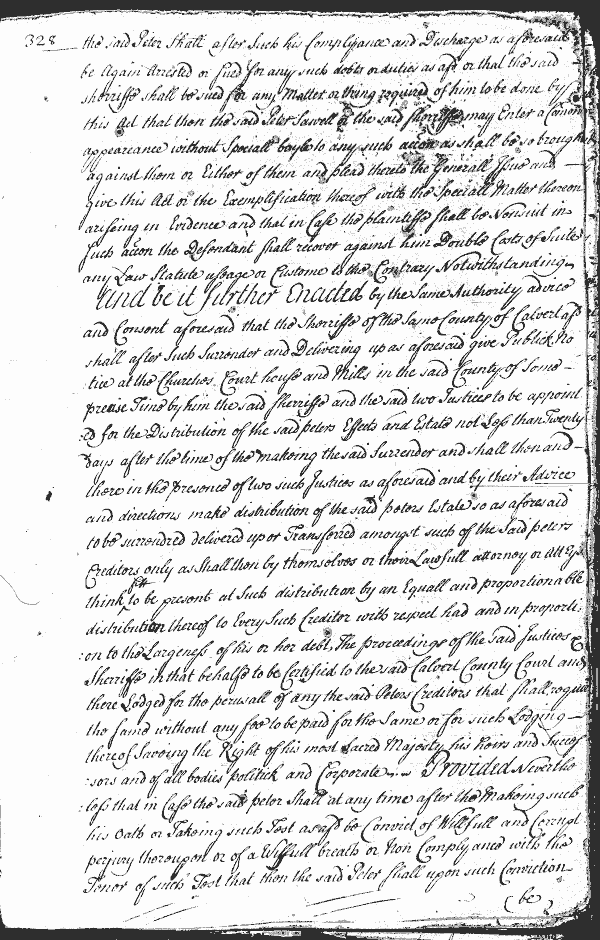 328 the said Peter Shall after Such his Complyance and Discharge as aforesaid
be Again Arrested or sued for any such debts or duties as afd or that the said
sherriffe shall be sued for any Matter or thing required of him to be done by
this Act that then the said Peter Sewell or the said sherriffe may Enter a Comon
appeareance without Speciall bayle to any such accon as shall be so brought
against them or Either of them and plead thereto the Generall Issue and
give this Act or the Exemplification thereof with the Speciall Matter thereon
arising in Evidence and that in Case the plaintiffe shall be Nonsuit in
such accon the Defendant shall recover against him Double Costs of Suite
any Law Statute useage or Custome to the Contrary Notwithstanding
And be it further Enacted by the Same Authority advice
and Consent aforesaid that the Sherriffe of the Same County of Calvert afd
shall after such Surrender and Delivering up as aforesaid give Publick No
tice at the Churches Court house and Mills in the said County of Some
precise Time by him the said sherriffe and the said two Justices to be appoint
:ed for the Distribution of the said peters Effects and Estate not Less than Twenty
Days after the time of the makeing the said Surrender and shall then and
there in the presence of two such Justices as aforesaid and by their Advice
and directions make distribution of the said peters Estate so as aforesaid
to be surrendred delivered up or Transferred amongst such of the Said peters
Creditors only as shall then by themselves or their Lawfull attorney or Attys
think fitt to be present at such distribution by an Equall and proportionable
distribution thereof to Every Such Creditor with respect had and in proporti:
:on to the Largeness of his or her debt, The proceedings of the said Justices &
Sherriffe in that behalfe to be Certified to the said Calvert County Court and
there Lodged for the perusall of any the said Peters Creditors that shall require
the same without any fee to be paid for the Same or for such Lodging
thereof Saveing the Right of his most Sacred Majesty his Heirs and Succes
:sors and of all bodies politick and Corporate Provided Neverthe
:less that in Case the said peter Shall at any time after the Makeing such
his Oath or Takeing such Test as afd be Convict of Willfull and Corrupt
perjury thereupon or of a Willfull breath or Non Complyance with the
Tenor of such Test that then the said Peter shall upon such Conviction
(be)